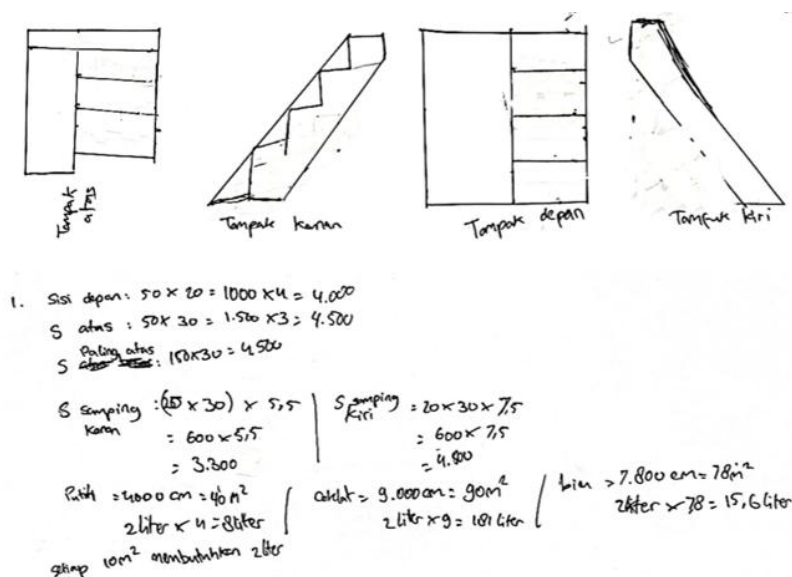 Tampak atas
Tampak kanan
Tampak depan
Tampak kiri
1. Sisi depan: 50 × 20 = 1000 × 4 = 4.000
S atas : 50 × 30 = 1.500 × 3 = 4.500
S Paling atas : 150 × 30 = 4.500
S samping kanan : (20 × 30) × 5,5
= 600 × 5,5
= 3.300
S samping kiri = 20 × 30 × 7,5
= 600 × 7,5
= 4.500
Putih = 4000 cm = 40 m²
2 liter × 4 = 8 liter
Coklat = 9.000 cm = 90 m²
2 liter × 9 = 18 liter
= 7.800 cm = 78 m²
2 liter × 78 = 15,6 liter
setiap 10 m² membutuhkan 2 liter